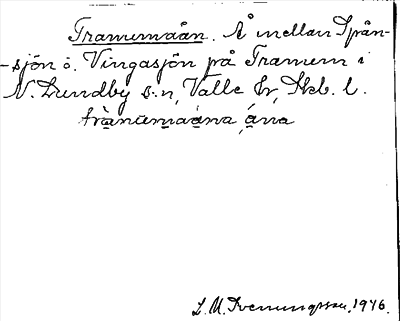 Tramumaån. Å mellan Spån-
-sjön o. Vingasjön på Tramum i
N. Lundby s:n, Valle hr, Skb. l.
trànumaána, ána
L. M. Svenungsson. 1946.